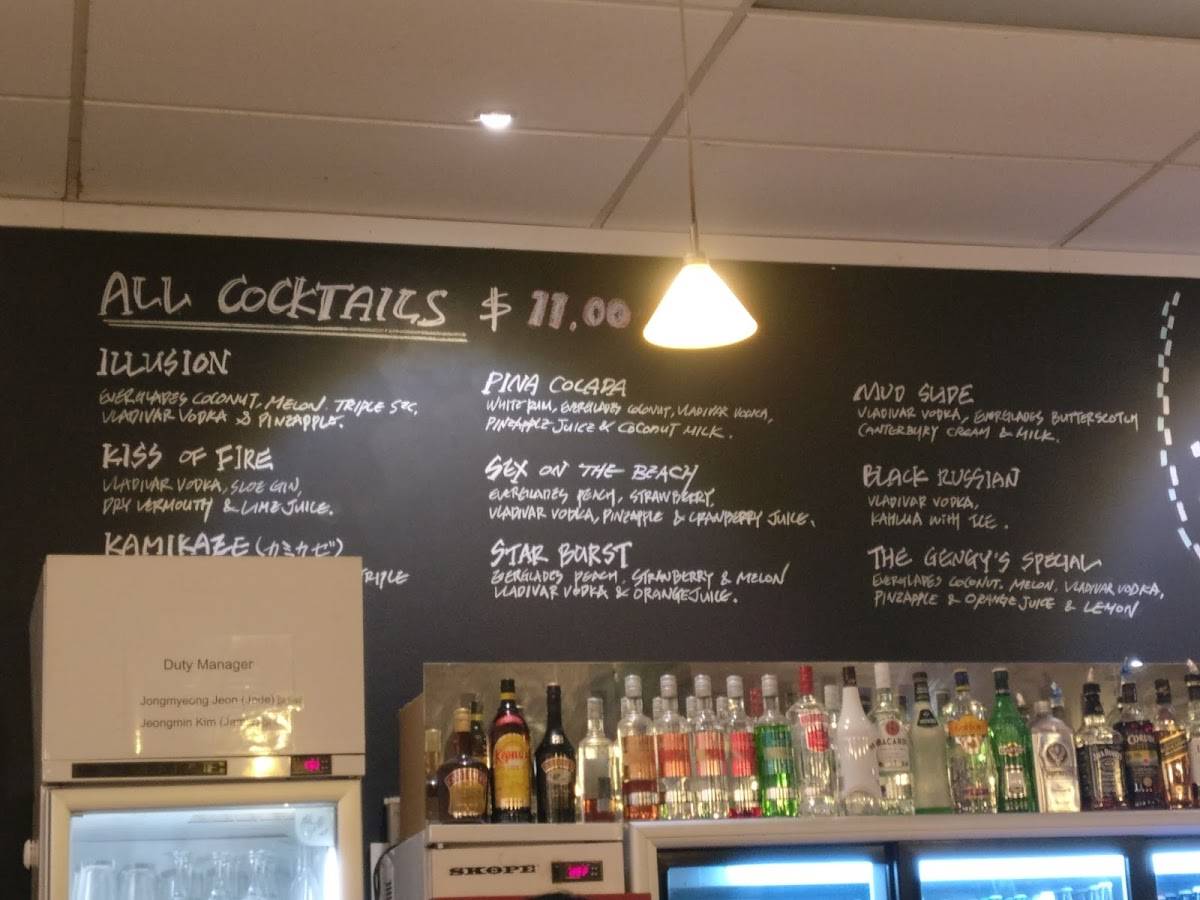 ALL COCKTAILS $ 11.00
ILLUSION
EVERGLADES COCONUT, MELON, TRIPLE SEC,
VLADIVAR VODKA & PINEAPPLE.
KISS OF FIRE
VLADIVAR VODKA, SLOE GIN,
DRY VERMOUTH & LIME JUICE.
KAMIKAZE (カミカゼ)
TRIPLE
PINA COLADA
WHITE RUM, EVERGLADES COCONUT, VLADIVAR VODKA,
PINEAPPLE JUICE & COCONUT MILK.
SEX ON THE BEACH
EVERGLADES PEACH, STRAWBERRY,
VLADIVAR VODKA, PINEAPPLE & CRANBERRY JUICE.
STAR BURST
EVERGLADES PEACH, STRAWBERRY & MELON
VLADIVAR VODKA & ORANGE JUICE.
MUD SLIDE
VLADIVAR VODKA, EVERGLADES BUTTERSCOTCH
CANTERBURY CREAM & MILK.
BLACK RUSSIAN
VLADIVAR VODKA,
KAHLUA WITH ICE.
THE GENGY'S SPECIAL
EVERGLADES COCONUT, MELON, VLADIVAR VODKA,
PINEAPPLE & ORANGE JUICE & LEMON
Duty Manager
Jongmyeong Jeon (Jade)
Jeongmin Kim
SKOPE
BACARDI